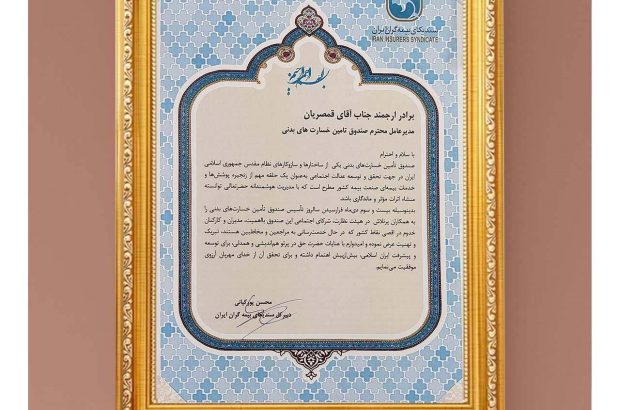 سندیکای بیمه گران ایران
IRAN INSURERS SYNDICATE
برادر ارجمند جناب آقای قمصریان
مدیرعامل محترم صندوق تامین خسارت های بدنی
با سلام و احترام
صندوق تأمین خسارت‌های بدنی یکی از ساختارها و سازوکارهای نظام مقدس جمهوری اسلامی
ایران در جهت تحقق و توسعه عدالت اجتماعی به‌عنوان یک حلقه مهم از زنجیره پوشش‌ها و
خدمات بیمه‌ای صنعت بیمه کشور مطرح است که با مدیریت هوشمندانه حضرتعالی توانسته
منشاء اثرات مؤثر و ماندگاری باشد.
بدینوسیله بیست و سوم دی‌ماه فرارسیدن سالروز تأسیس صندوق تأمین خسارت‌های بدنی را
به همکاران پرتلاش در هیئت نظارت، شرکای اجتماعی این صندوق بااهمیت، مدیران و کارکنان
خدوم در اقصی نقاط کشور که در حال خدمت‌رسانی به مراجعین و مخاطبین هستند، تبریک
و تهنیت عرض نموده و امیدوارم با عنایات حضرت حق در پرتو هم‌اندیشی و همدلی، برای توسعه
و پیشرفت ایران اسلامی، بیش‌ازپیش اهتمام داشته و برای تحقق آن از خدای مهربان آرزوی
موفقیت می‌نمایم.
محسن پورکیانی
دبیرکل سندیکای بیمه گران ایران